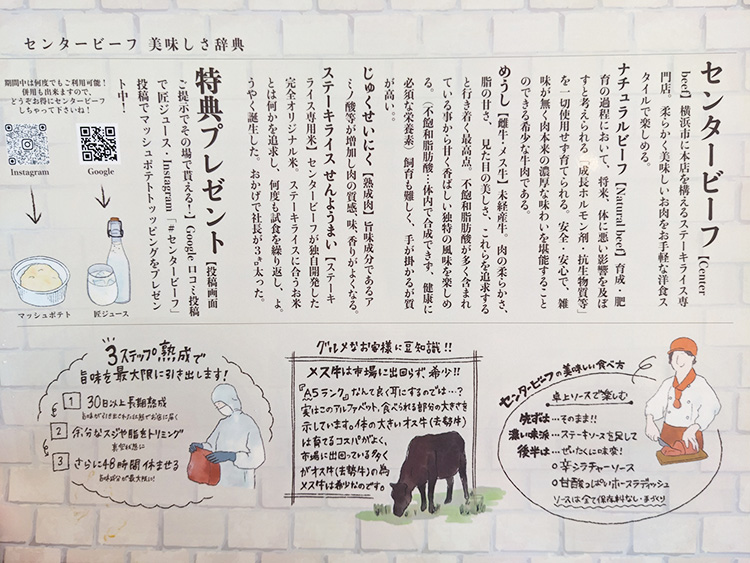 センタービーフ 美味しさ辞典
センタービーフ【Center
beef】横浜市に本店を構えるステーキライス専
門店。柔らかく美味しいお肉をお手軽な洋食ス
タイルで楽しめる。
ナチュラルビーフ【Natural beef】育成・肥
育の過程において、将来、体に悪い影響を及ぼ
すと考えられる「成長ホルモン剤、抗生物質等」
を一切使用せず育てられる。安全・安心で、雑
味が無く肉本来の濃厚な味わいを堪能すること
のできる希少な牛肉である。
めうし【雌牛・メス牛】未経産牛。肉の柔らかさ、
脂の甘さ、見た目の美しさ、これらを追求する
と行き着く最高点。不飽和脂肪酸が多く含まれ
ている事から甘く香ばしい独特の風味を楽しめ
る。（不飽和脂肪酸…体内で合成できず、健康に
必須な栄養素）飼育も難しく、手が掛かるが質
が高い。。
じゅくせいにく【熟成肉】旨味成分であるア
ミノ酸等が増加し肉の質感、味、香りがよくなる。
ステーキライスせんようまい【ステーキ
ライス専用米】センタービーフが独自開発した
完全オリジナル米。ステーキライスに合うお米
とは何かを追求し、何度も試食を繰り返し、よ
うやく誕生した。おかげで社長が3㎏太った。
特典プレゼント【投稿画面
ご提示でその場で貰える！】Google 口コミ投稿
で匠ジュース・Instagram「#センタービーフ」
投稿でマッシュポテトトッピングをプレゼン
ト中！
期間中は何度でもご利用可能！
併用も出来ますので、
どうぞお得にセンタービーフ
しちゃって下さいね！
Instagram
Google
マッシュポテト
匠ジュース
3ステップ熟成で
旨味を最大限に引き出します！
1 30日以上長期熟成
旨味が引き出されたお肉がお店に届く
2 余分なスジや脂をトリミング
真空状態に
3 さらに48時間休ませる
旨味成分が最大限に！
グルメなお客様に豆知識!!
メス牛は市場に出回らず希少!!
『A5ランク』なんて良く耳にするのでは…？
実はこのアルファベット、食べられる部分の大きさを
示しています。1体の大きいオス牛(去勢牛)
は育てるコスパがよく、
市場に出回っている多く
がオス牛(去勢牛)の為
メス牛は希少なのです。
センタービーフの美味しい食べ方
卓上ソースで楽しむ
先ずは…そのまま!!
濃い味派…ステーキソースを足して
後半は…ぜいたくに味変！
○辛シラチャーソース
○甘酸っぱいホースラディッシュ
ソースは全て保存料なし・手づくり